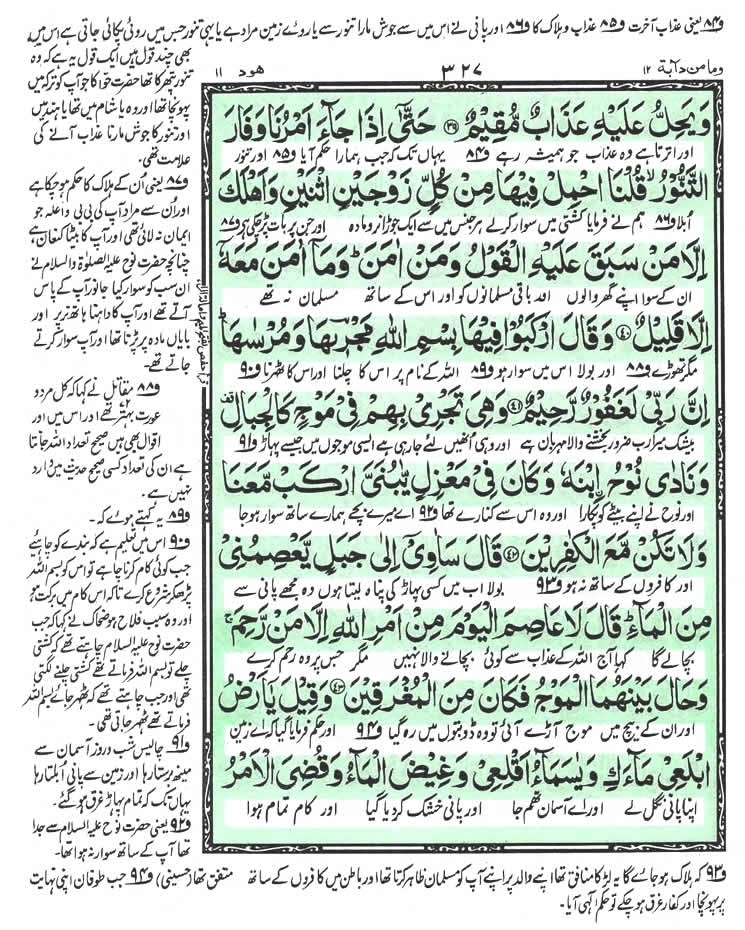 و۸۴ یعنی عذاب آخرت و۸۵ عذاب و ہلاک کا و۸۶ اور پانی نے اس میں سے جوش مارا تنور سے یا روئے زمین مراد ہے یا یہی تنور جس میں روٹی پکائی جاتی ہے اس میں
بھی چند قول ہیں ایک قول یہ ہے کہ وہ
تنور پتھر کا تھا حضرت حوا کا جو آپ کو ترکہ میں
پہونچا تھا اور وہ یا شام میں تھا یا ہند میں
اور تنور کا جوش مارنا عذاب آنے کی
علامت تھی۔
و۸۷ یعنی اُن کے ہلاک کا حکم ہو چکا ہے
اور اُن سے مراد آپ کی بی بی واعلہ جو
ایمان نہ لائی تھی اور آپ کا بیٹا کنعان ہے
چنانچہ حضرت نوح علیہ الصلوٰۃ والسلام نے
ان سب کو سوار کیا جانور آپ کے پاس
آتے تھے اور آپ کا داہنا ہاتھ نر پر اور
بایاں مادہ پر پڑتا تھا اور آپ سوار کرتے
جاتے تھے۔
و۸۸ مقاتل نے کہا کہ کل مرد و
عورت بہتر ۷۲ تھے اور اس میں اور
اقوال بھی ہیں صحیح تعداد اللہ جانتا
ہے ان کی تعداد کسی صحیح حدیث میں وارد
نہیں ہے۔
و۸۹ یہ کہتے ہوئے کہ۔
و۹۰ اس میں تعلیم ہے کہ بندے کو چاہئے
جب کوئی کام کرنا چاہے تو اس کو بسم اللہ
پڑھ کر شروع کرے تاکہ اس کام میں برکت ہو
اور وہ سبب فلاح ہو ضحاک نے کہا کہ جب
حضرت نوح علیہ السلام چاہتے تھے کہ کشتی
چلے تو بسم اللہ فرماتے تھے کشتی چلنے لگتی
تھی اور جب چاہتے تھے کہ ٹھہر جائے بسم اللہ
فرماتے تھے ٹھہر جاتی تھی۔
و۹۱ چالیس شب و روز آسمان سے
مینھ برستا رہا اور زمین سے پانی اُبلتا رہا
یہاں تک کہ تمام پہاڑ غرق ہو گئے۔
و۹۲ یعنی حضرت نوح علیہ السلام سے جدا
تھا آپ کے ساتھ سوار نہ ہوا تھا۔
وما من دآبة ١٢
٣٢٧
هود ١١
وَيَحِلُّ عَلَيْهِ عَذَابٌ مُّقِيْمٌ ﴿٣٩﴾ حَتّٰۤى اِذَا جَآءَ اَمْرُنَا وَفَارَ
اور اترتا ہے وہ عذاب جو ہمیشہ رہے و۸۴ یہاں تک کہ جب ہمارا حکم آیا و۸۵ اور تنور
التَّنُّوْرُ ۙ قُلْنَا احْمِلْ فِيْهَا مِنْ كُلٍّ زَوْجَيْنِ اثْنَيْنِ وَاَهْلَكَ
اُبلا و۸۶ ہم نے فرمایا کشتی میں سوار کر لے ہر جنس میں سے ایک جوڑا نر و مادہ اور جن پر بات پڑ چکی ہے و۸۷
اِلَّا مَنْ سَبَقَ عَلَيْهِ الْقَوْلُ وَمَنْ اٰمَنَ ؕ وَمَاۤ اٰمَنَ مَعَهٗۤ
ان کے سوا اپنے گھر والوں اور باقی مسلمانوں کو اور اس کے ساتھ مسلمان نہ تھے
اِلَّا قَلِيْلٌ ﴿٤٠﴾ وَقَالَ ارْكَبُوْا فِيْهَا بِسْمِ اللّٰهِ مَجْرٖىهَا وَمُرْسٰىهَا ؕ
مگر تھوڑے و۸۸ اور بولا اس میں سوار ہو و۸۹ اللہ کے نام پر اس کا چلنا اور اس کا ٹھہرنا و۹۰
اِنَّ رَبِّيْ لَغَفُوْرٌ رَّحِيْمٌ ﴿٤١﴾ وَهِيَ تَجْرِيْ بِهِمْ فِيْ مَوْجٍ كَالْجِبَالِ
بیشک میرا رب ضرور بخشنے والا مہربان ہے اور وہی اُنھیں لئے جا رہی ہے ایسی موجوں میں جیسے پہاڑ و۹۱
وَنَادٰى نُوْحُ ِۨابْنَهٗ وَكَانَ فِيْ مَعْزِلٍ يّٰبُنَيَّ ارْكَبْ مَّعَنَا
اور نوح نے اپنے بیٹے کو پکارا اور وہ اس سے کنارے تھا و۹۲ اے میرے بچے ہمارے ساتھ سوار ہو جا
وَلَا تَكُنْ مَّعَ الْكٰفِرِيْنَ ﴿٤٢﴾ قَالَ سَاٰوِيْۤ اِلٰى جَبَلٍ يَّعْصِمُنِيْ
اور کافروں کے ساتھ نہ ہو و۹۳ بولا اب میں کسی پہاڑ کی پناہ لیتا ہوں وہ مجھے پانی سے
مِنَ الْمَآءِ ؕ قَالَ لَا عَاصِمَ الْيَوْمَ مِنْ اَمْرِ اللّٰهِ اِلَّا مَنْ رَّحِمَ ۚ
بچا لے گا کہا آج اللہ کے عذاب سے کوئی بچانے والا نہیں مگر جس پر وہ رحم کرے
وَحَالَ بَيْنَهُمَا الْمَوْجُ فَكَانَ مِنَ الْمُغْرَقِيْنَ ﴿٤٣﴾ وَقِيْلَ يٰۤاَرْضُ
اور ان کے بیچ میں موج آڑے آئی تو وہ ڈوبتوں میں رہ گیا و۹۴ اور حکم فرمایا گیا کہ اے زمین
ابْلَعِيْ مَآءَكِ وَيٰسَمَآءُ اَقْلِعِيْ وَغِيْضَ الْمَآءُ وَقُضِيَ الْاَمْرُ
اپنا پانی نگل لے اور اے آسمان تھم جا اور پانی خشک کر دیا گیا اور کام تمام ہوا
و۹۳ کہ ہلاک ہو جائے گا یہ لڑکا منافق تھا اپنے والد پر اپنے آپ کو مسلمان ظاہر کرتا تھا اور باطن میں کافروں کے ساتھ متفق تھا (حسینی) و۹۴ جب طوفان اپنی نہایت
پر پہونچا اور کفار غرق ہو چکے تو حکم الٰہی آیا۔